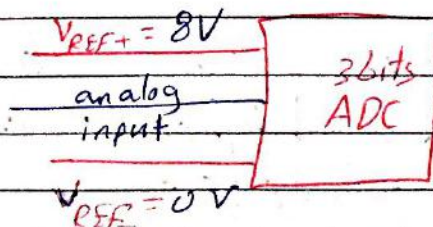 VREF+ = 8V
analog
input
3bits
ADC
VREF- = 0 V